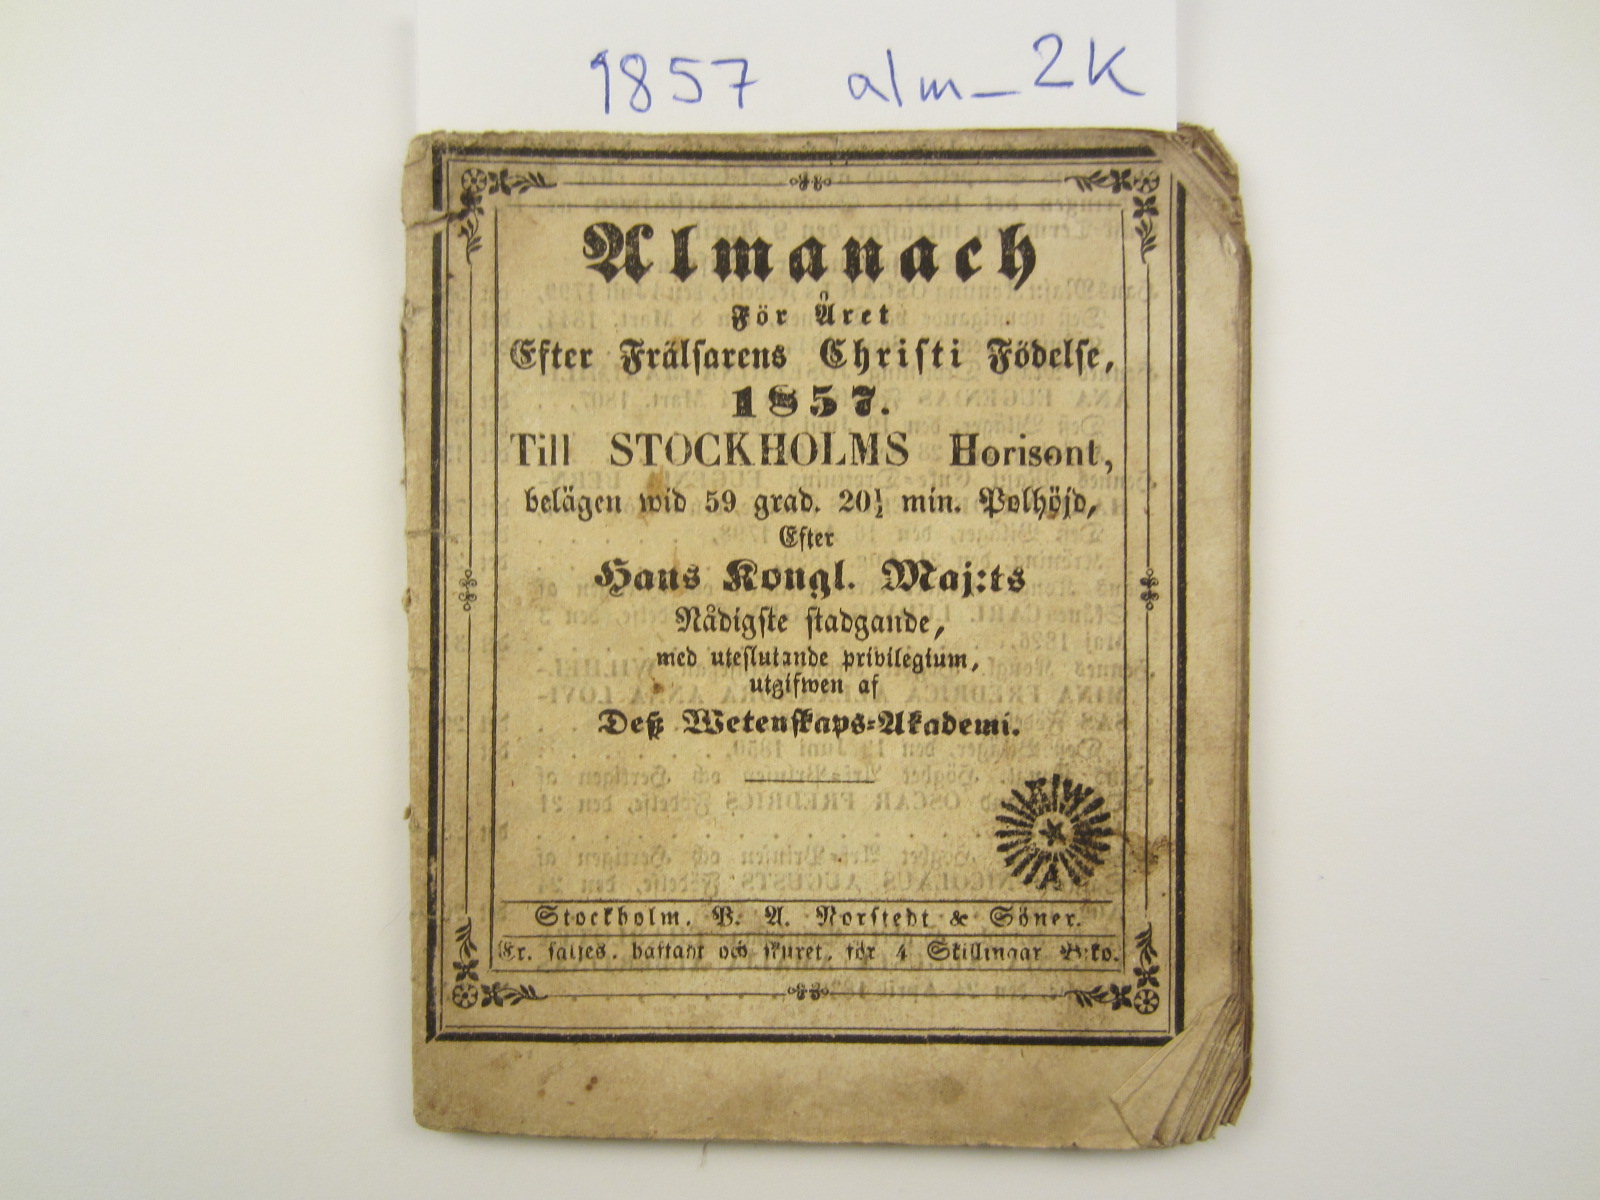 1857 alm_2K
Almanach
För Året
Efter Frälsarens Christi Födelse,
1857.
Till STOCKHOLMS Horisont,
belägen wid 59 grad. 20½ min. Polhöjd,
Efter
Hans Kongl. Maj:ts
Nådigste stadgande,
med uteslutande privilegium,
utgifwen af
Deß Wetenskaps-Akademi.
Stockholm, P. A. Norstedt & Söner.
Ex. säljes, häftadt och skuret, för 4 Skillingar B:ko.